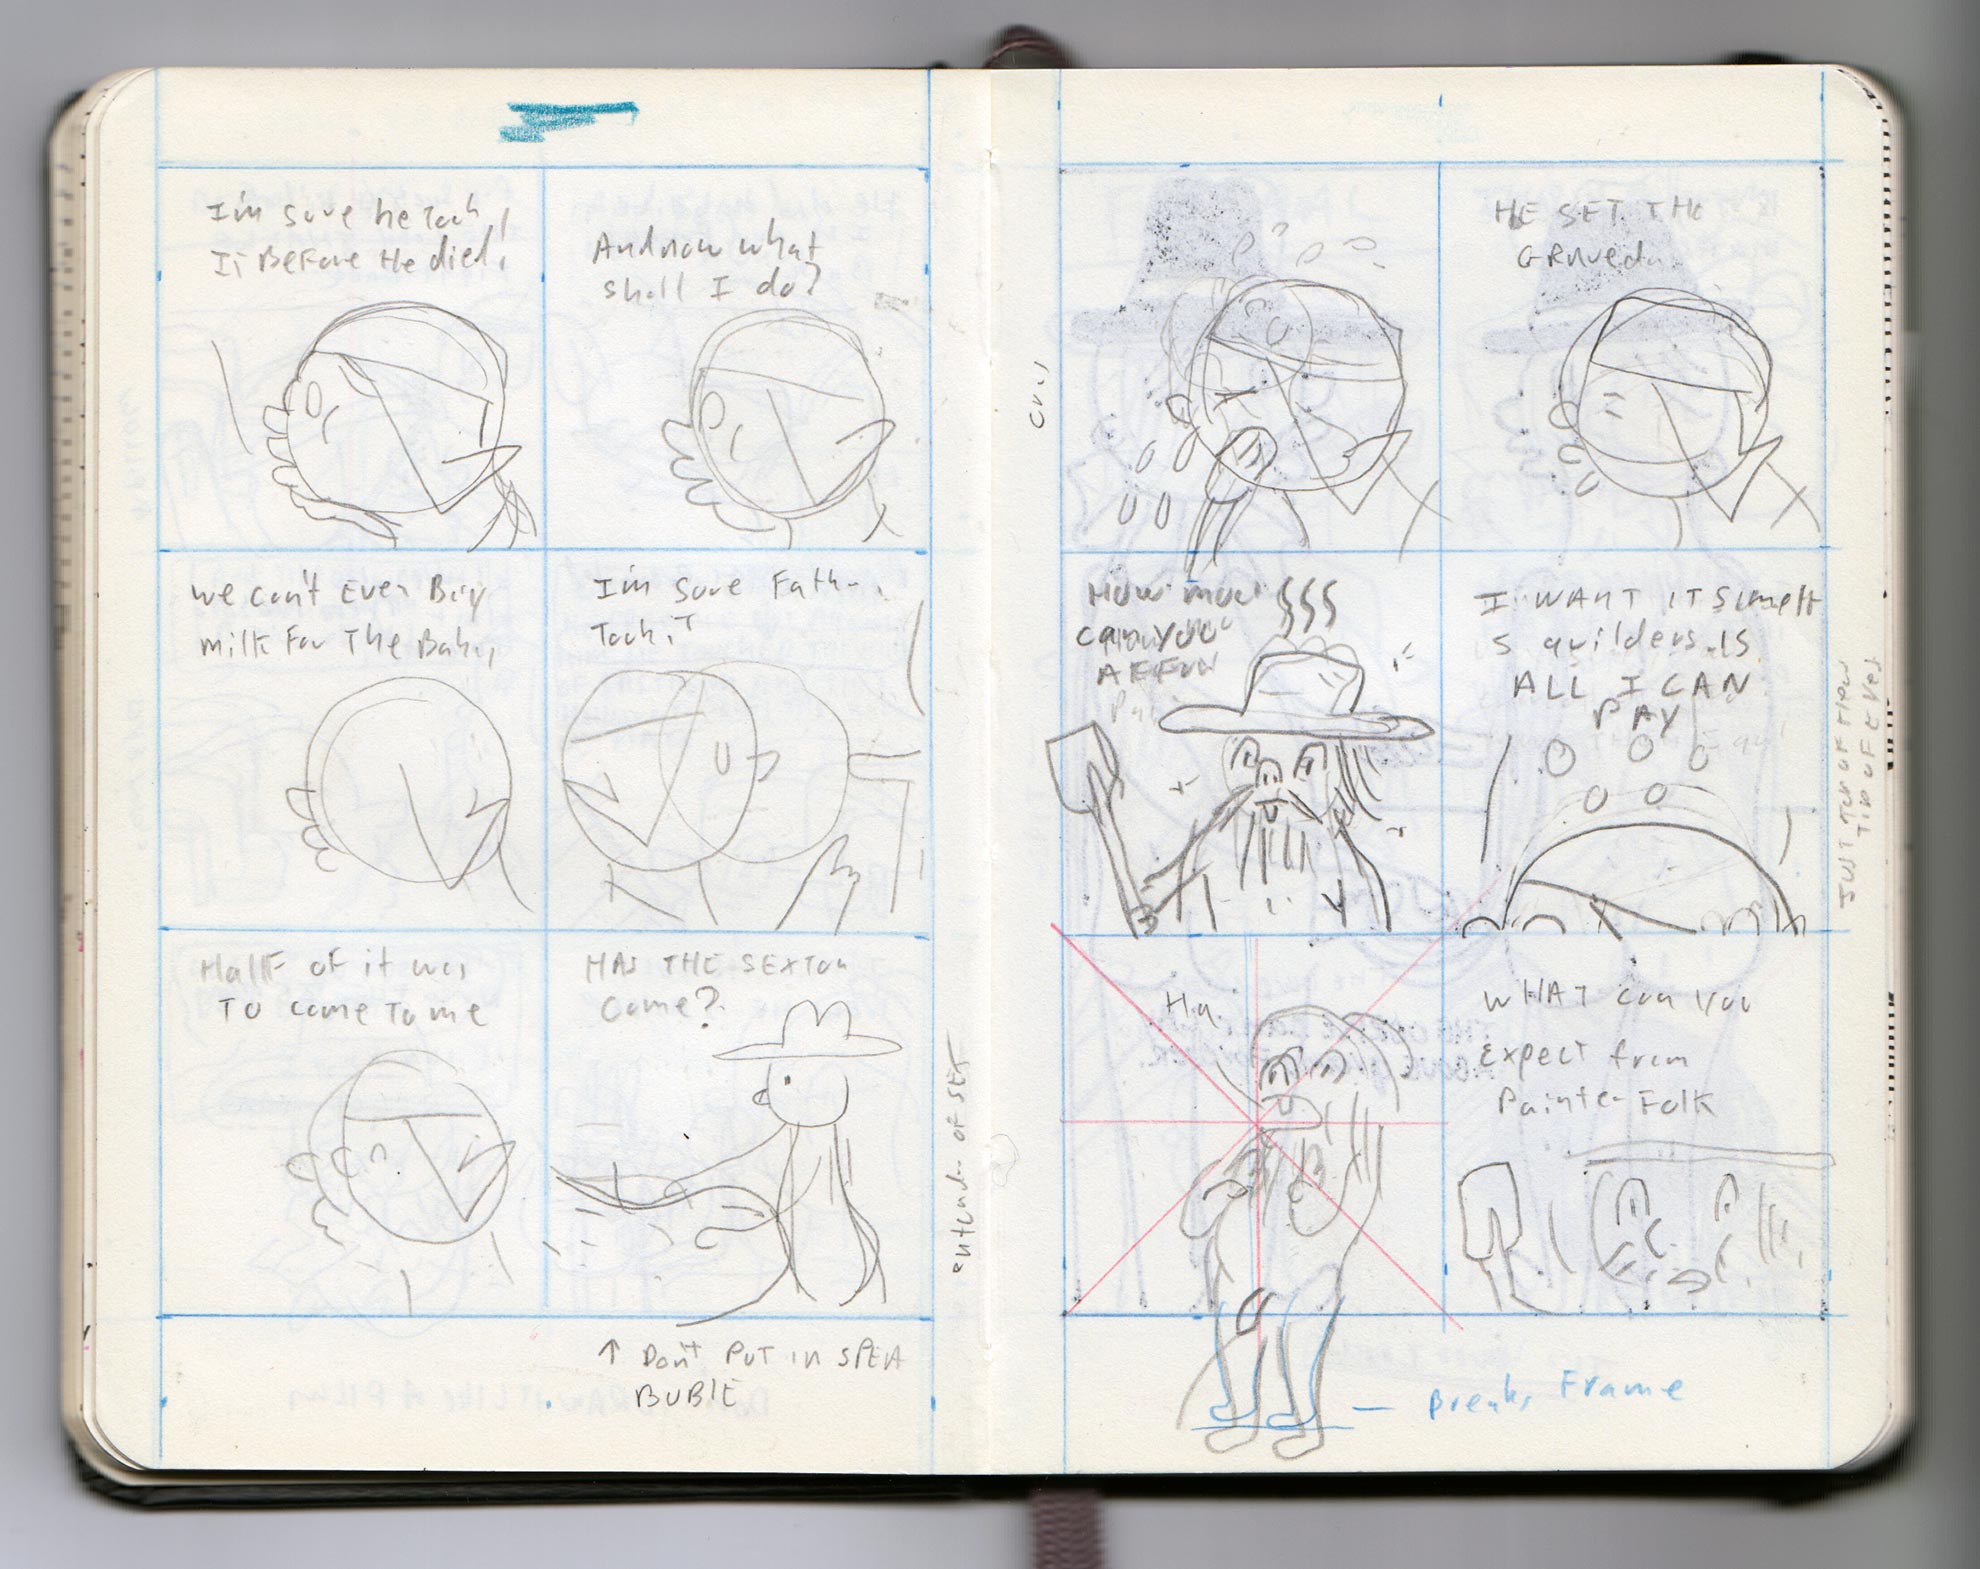 I'm sure he took
IT BEFORE He died,
And now what
shall I do?
we can't Even Buy
milk For The Baby,
I'm sure Fath
Took iT
Half of it was
To come To me
HAS THE SEXTON
Come?
↑ Don't PUT in SPEA
BUBlE
HE SET THE
How muc
can you
AFFOR
I WANT IT
5 guilders IS
ALL I CAN
PAY
JUST TOP OF
Ha
WHAT can you
Expect from
Painter Folk
— Breaks Frame